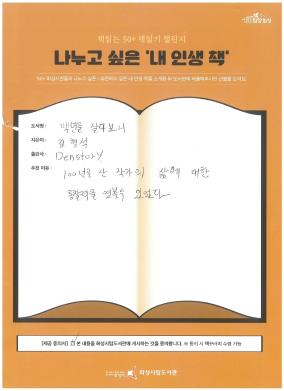 책읽는 50+ 책읽기 챌린지
나누고 싶은 '내 인생 책'
도서명 : 백년을 살아보니
지은이 : 김형석
출판사 : Denstory
추천 이유 : 100년을 산 작가의 삶에 대한
통찰력을 엿볼수 있었다
[제공 동의서] 본 내용을 화성시립도서관에 게시하는 것을 동의합니다. ※ 동의 시 책선물의 수령 가능
화성시립도서관